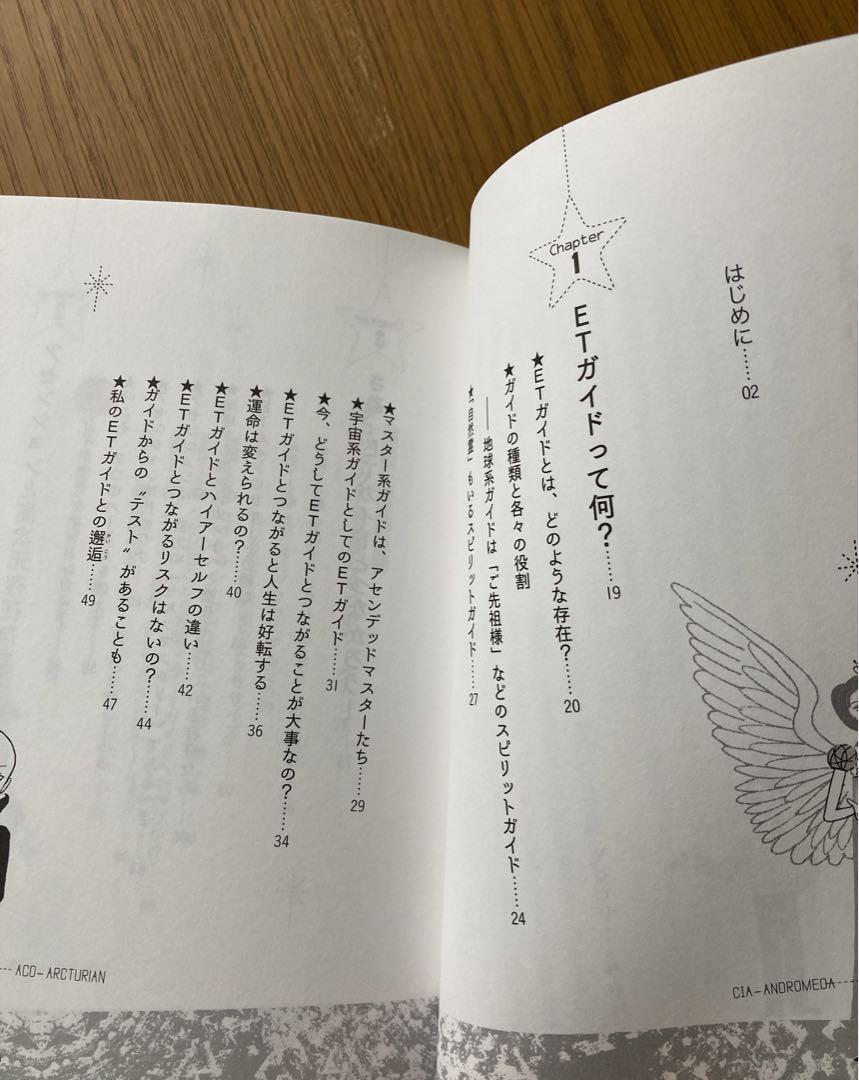 はじめに……02
Chapter
1
ETガイドって何?……19
★ETガイドとは、どのような存在?……20
★ガイドの種類と各々の役割
――地球系ガイドは「ご先祖様」などのスピリットガイド……24
★「自然霊」もいるスピリットガイド……27
★マスター系ガイドは、アセンデッドマスターたち……29
★宇宙系ガイドとしてのETガイド……31
★今、どうしてETガイドとつながることが大事なの?……34
★ETガイドとつながると人生は好転する……36
★運命は変えられるの?……40
★ETガイドとハイアーセルフの違い……42
★ETガイドとつながるリスクはないの?……44
★ガイドからの〝テスト〟があることも……47
★私のETガイドとの邂逅……49
かいこう
ACO-ARCTURIAN
CIA-ANDROMEDA